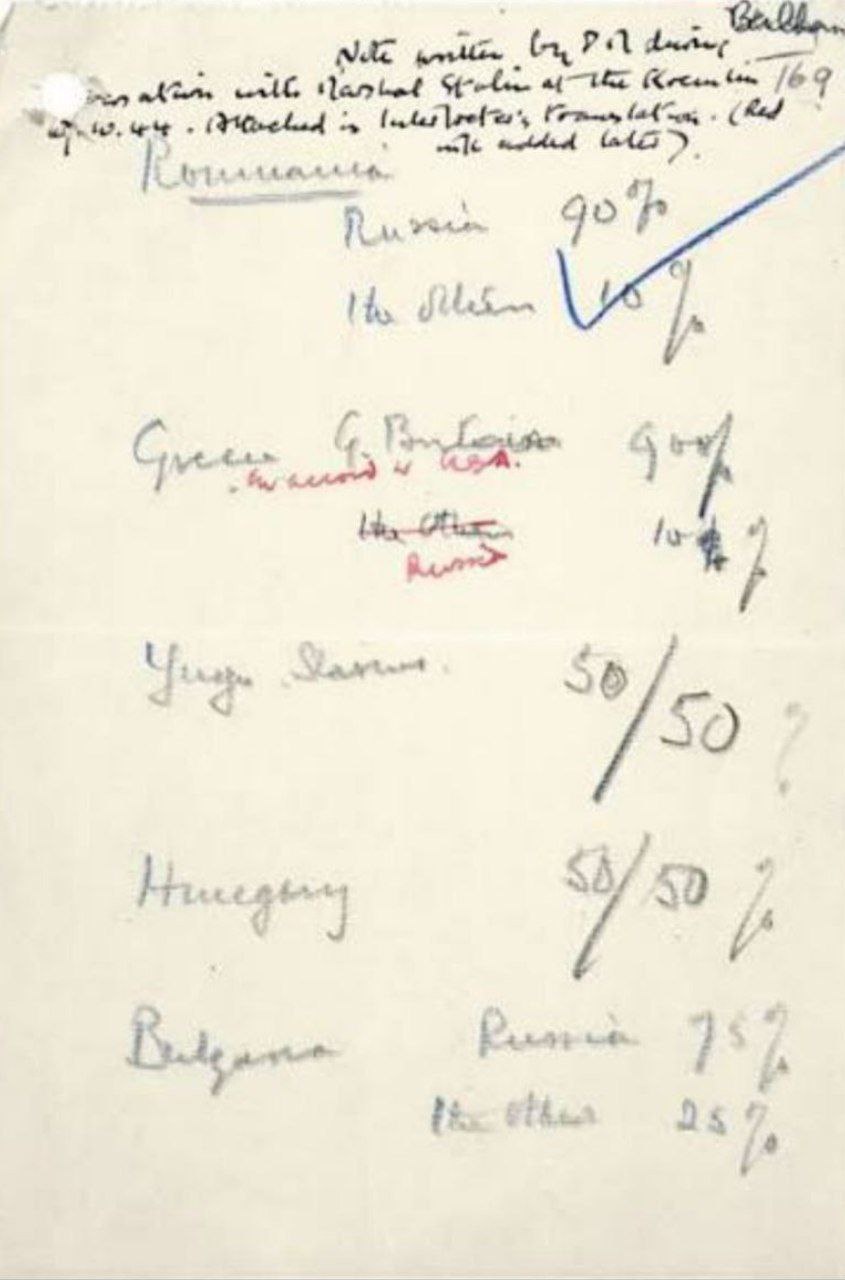 Note written by PM during
with Marshal Stalin at the Kremlin 169
.44. Attached is Interpreter's translation. (Red
ink added later).
Roumania
Russia 90%
The others 10%
Greece G. Britain 90%
in accord w USA.
The Others 10%
Russia
Yugo Slavia. 50/50 %
Hungary 50/50 %
Bulgaria Russia 75%
The others 25%